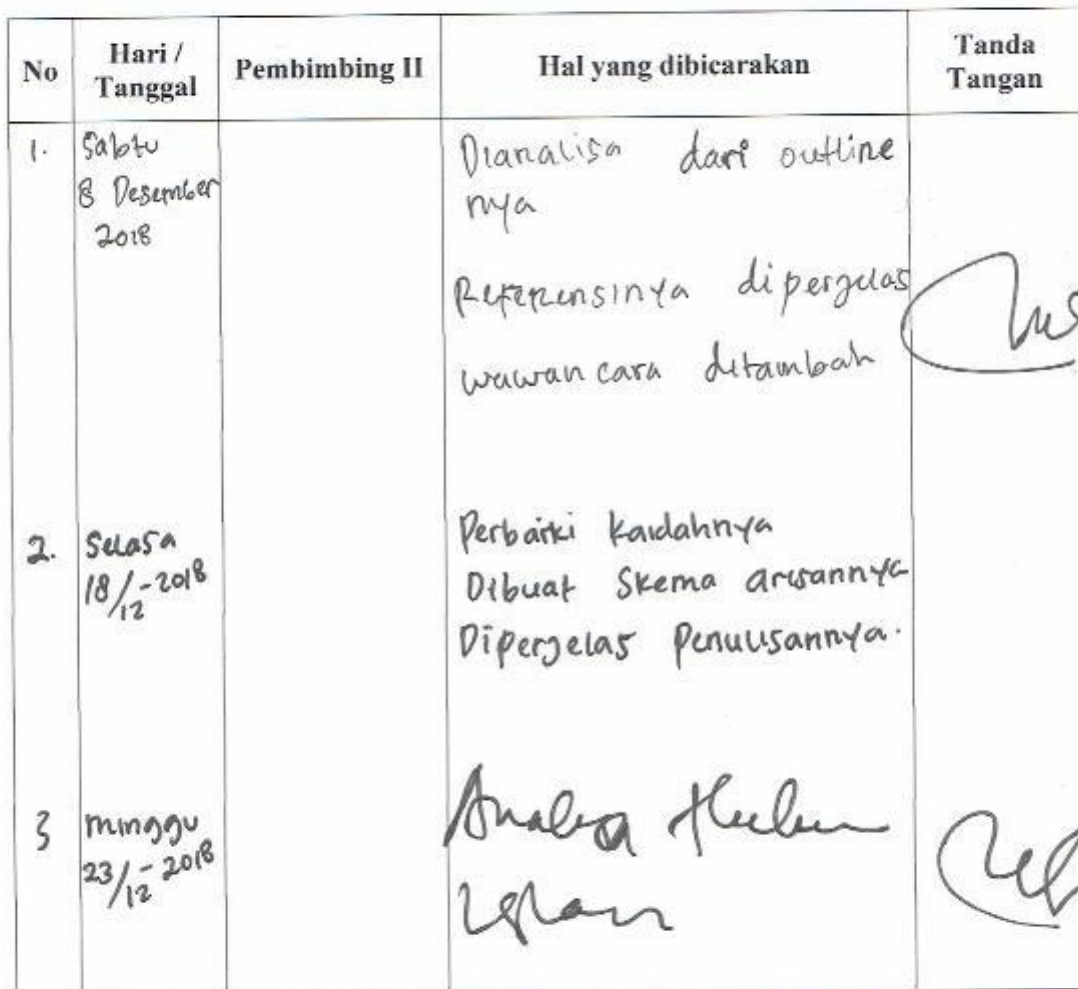 No Hari / Tanggal Pembimbing II Hal yang dibicarakan Tanda Tangan
1. Sabtu
8 Desember
2018
Dianalisa dari outline
nya
Referensinya diperjelas
wawancara ditambah
2. Selasa
18/12-2018
Perbaiki kaidahnya
Dibuat Skema arisannya
Diperjelas Penulisannya.
3 minggu
23/12-2018
Analisa Hukum
Islam